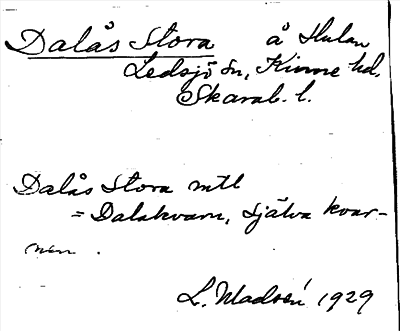 Dalås Stora å Hulan
Ledsjö sn, Kinne hd.
Skarab. l.
Dalås Stora mtl
= Dalakvarn, själva kvar-
nen.
L. Madsén 1929